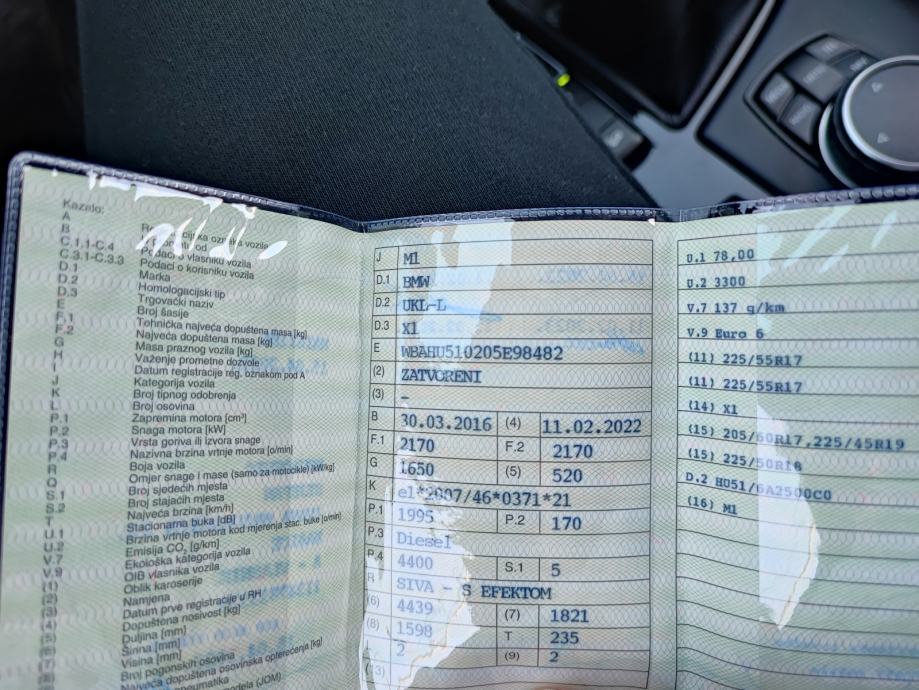 Kazalo:
A
B
C.1.1-C.4
C.3.1-C.3.3
D.1
D.2
D.3
E
F.1
F.2
G
H
I
J
K
L
P.1
P.2
P.3
P.4
R
Q
S.1
S.2
T
U.1
U.2
V.7
V.9
(1)
(2)
(3)
(4)
(5)
(6)
(7)
oznaka vozila
Podaci o vlasniku vozila
Podaci o korisniku vozila
Marka
Homologacijski tip
Trgovački naziv
Broj šasije
Tehnička najveća dopuštena masa [kg]
Najveća dopuštena masa [kg]
Masa praznog vozila [kg]
Važenje prometne dozvole
Datum registracije reg. oznakom pod A
Kategorija vozila
Broj tipnog odobrenja
Broj osovina
Zapremina motora [cm³]
Snaga motora [kW]
Vrsta goriva ili izvora snage
Nazivna brzina vrtnje motora [o/min]
Boja vozila
Omjer snage i mase (samo za motocikle) [kW/kg]
Broj sjedećih mjesta
Broj stajaćih mjesta
Najveća brzina [km/h]
Stacionarna buka [dB]
Brzina vrtnje motora kod mjerenja stac. buke [o/min]
Emisija CO₂ [g/km]
Ekološka kategorija vozila
OIB vlasnika vozila
Oblik karoserije
Namjena
Datum prve registracije u RH
Dopuštena nosivost [kg]
Duljina [mm]
Širina [mm]
Visina [mm]
Broj pogonskih osovina
Najveća dopuštena osovinska opterećenja [kg]
J M1
D.1 BMW
D.2 UKL-L
D.3 X1
E WBAHU510205E98482
(2) ZATVORENI
(3) –
B 30.03.2016 (4) 11.02.2022
F.1 2170 F.2 2170
G 1650 (5) 520
K e1*2007/46*0371*21
P.1 1995 P.2 170
P.3 Diesel
P.4 4400 S.1 5
R SIVA - S EFEKTOM
(6) 4439 (7) 1821
(8) 1598 T 235
2 (9) 2
(13)
U.1 78,00
U.2 3300
V.7 137 g/km
V.9 Euro 6
(11) 225/55R17
(11) 225/55R17
(14) X1
(15) 205/60R17,225/45R19
(15) 225/50R18
D.2 HU51/6A2500C0
(16) M1